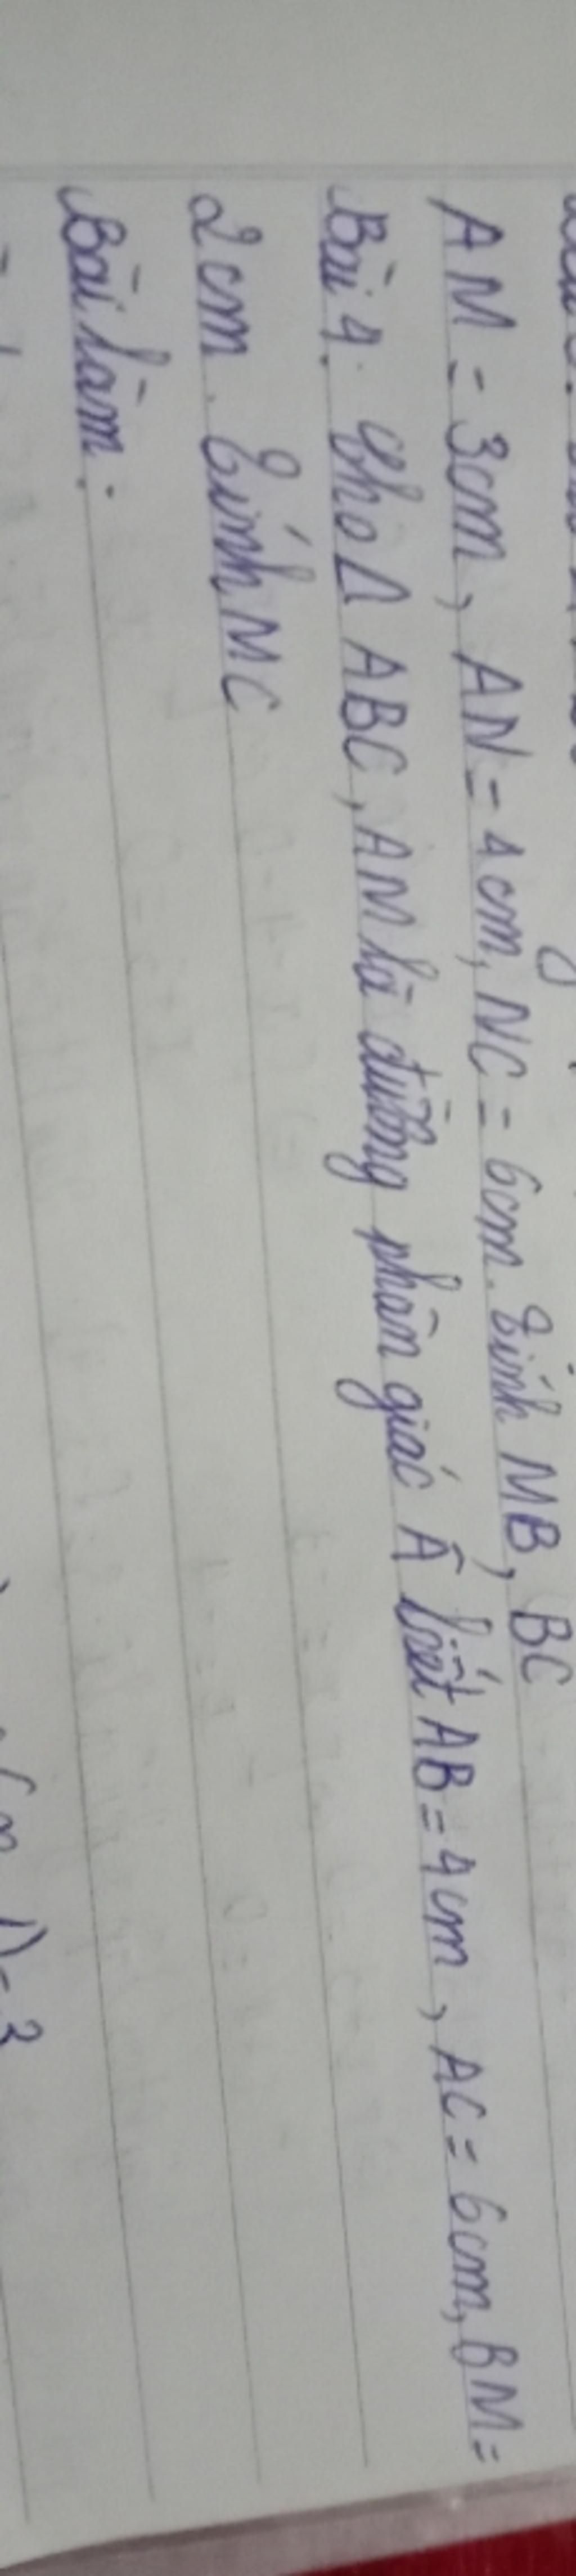 AM = 3cm, AN = 4cm, NC = 6cm. Tính MB, BC
Bài 4. Cho Δ ABC, AM là đường phân giác Â biết AB = 4cm, AC = 6cm, BM =
2cm. Tính MC
Bài làm: